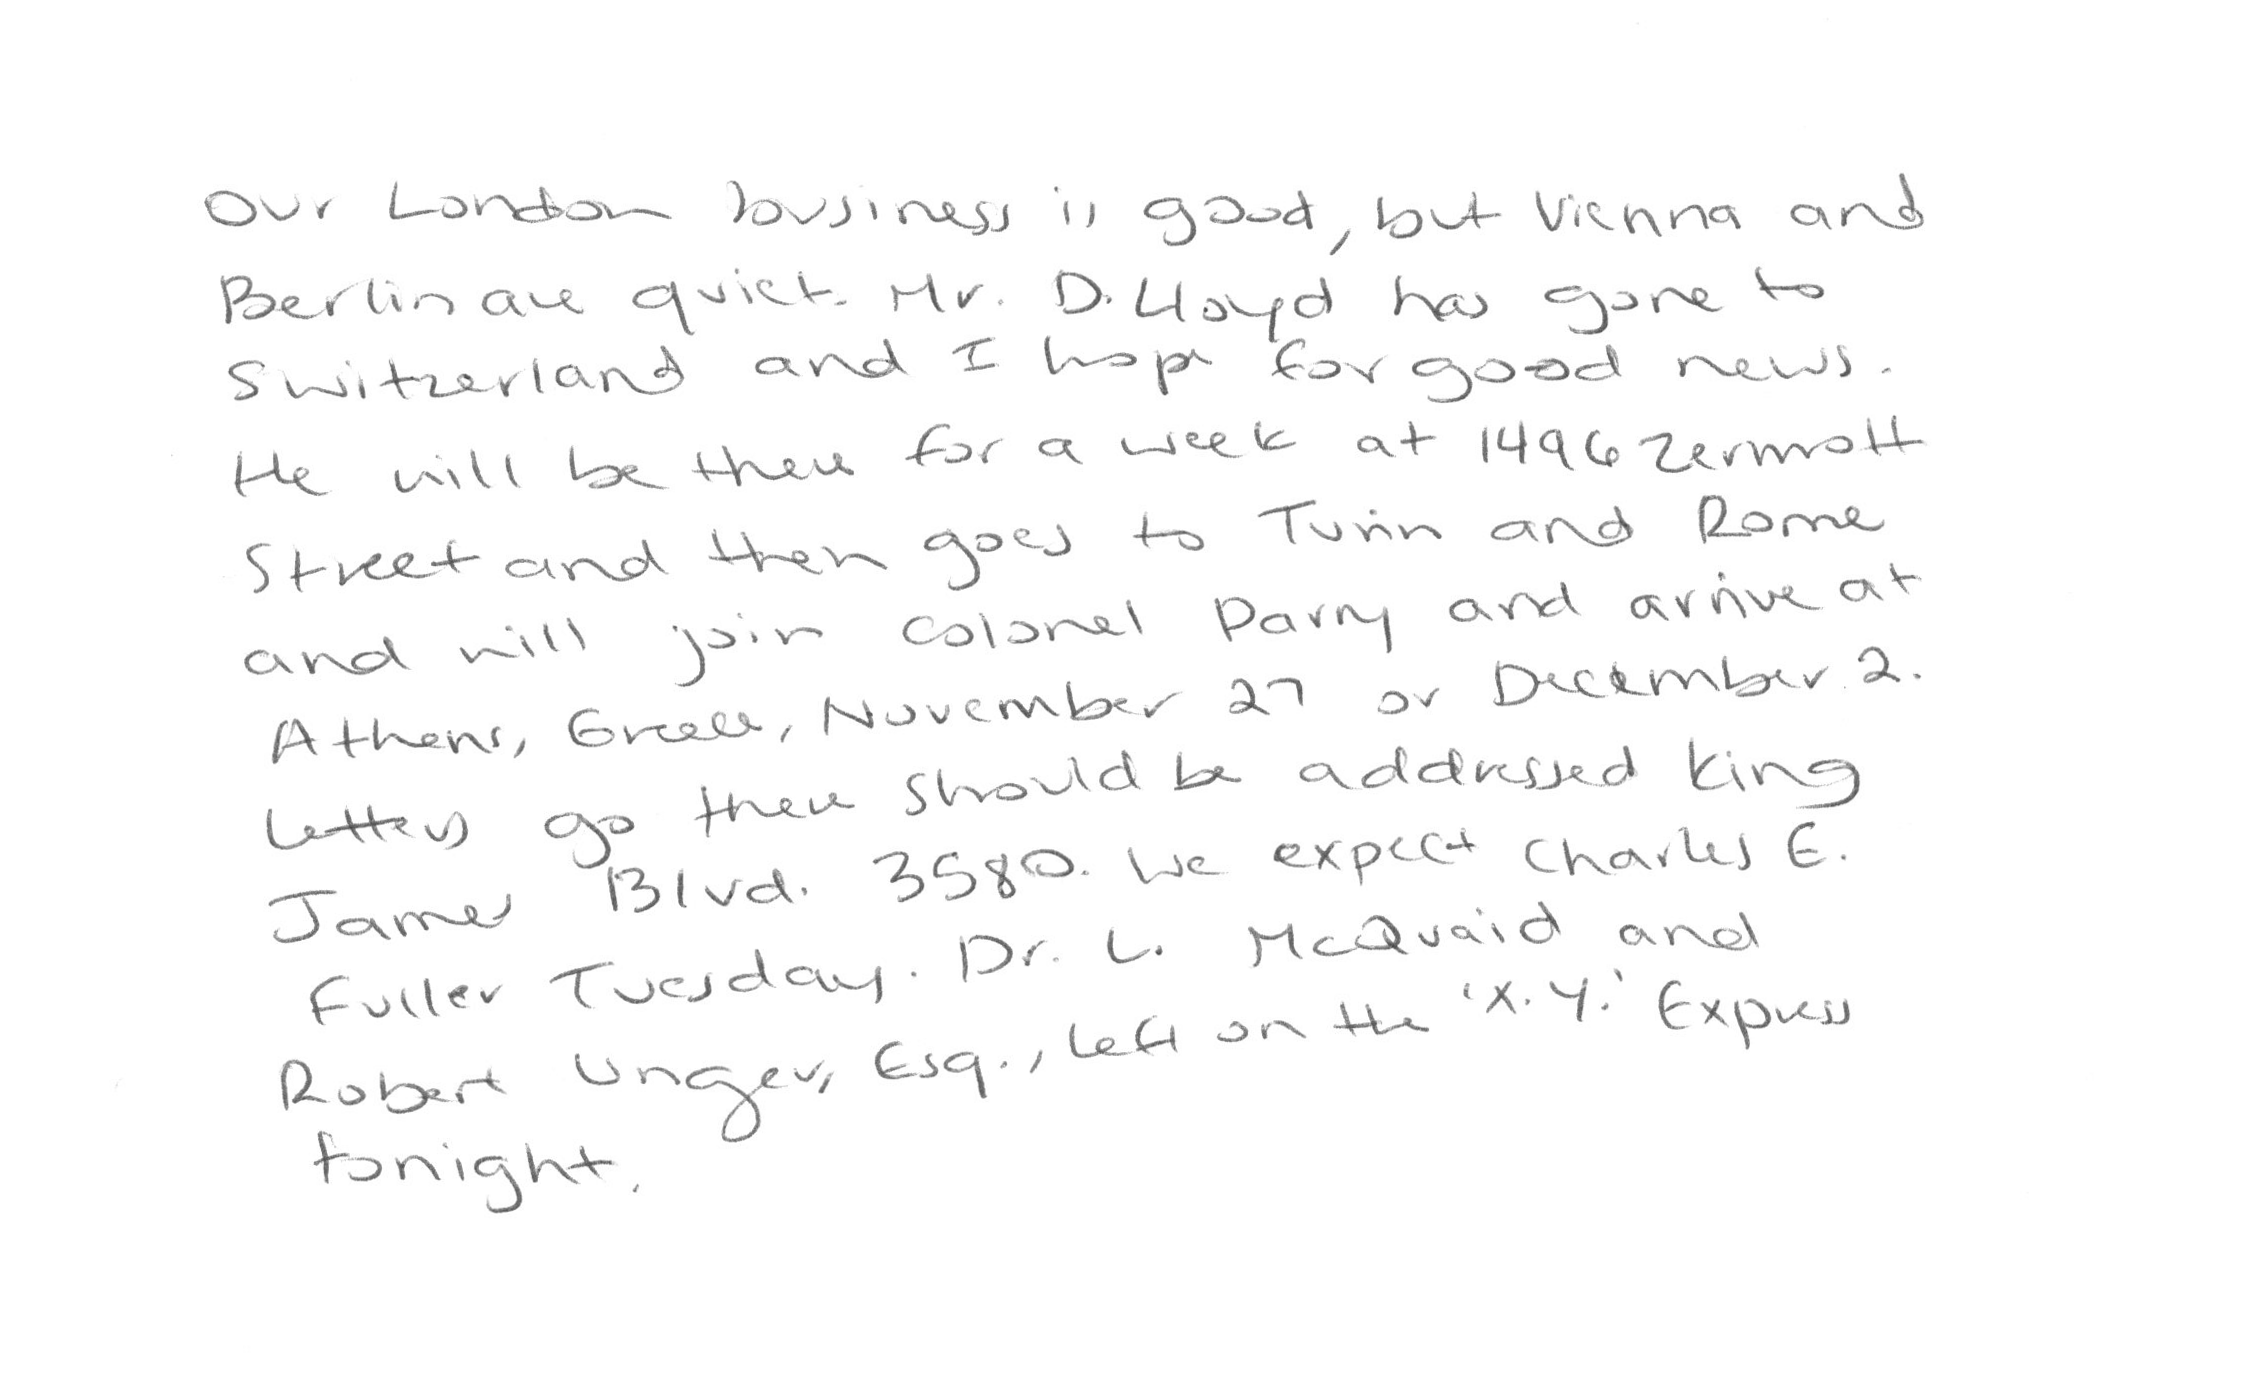 Our London business is good, but Vienna and
Berlin are quiet. Mr. D. Lloyd has gone to
Switzerland and I hope for good news.
He will be there for a week at 1496 Zermott
Street and then goes to Turin and Rome
and will join Colonel Parry and arrive at
Athens, Greece, November 27 or December 2.
Letters go there should be addressed King
James Blvd. 3580. We expect Charles E.
Fuller Tuesday. Dr. L. McQuaid and
Robert Unger, Esq., left on the 'X.Y.' Express
tonight.